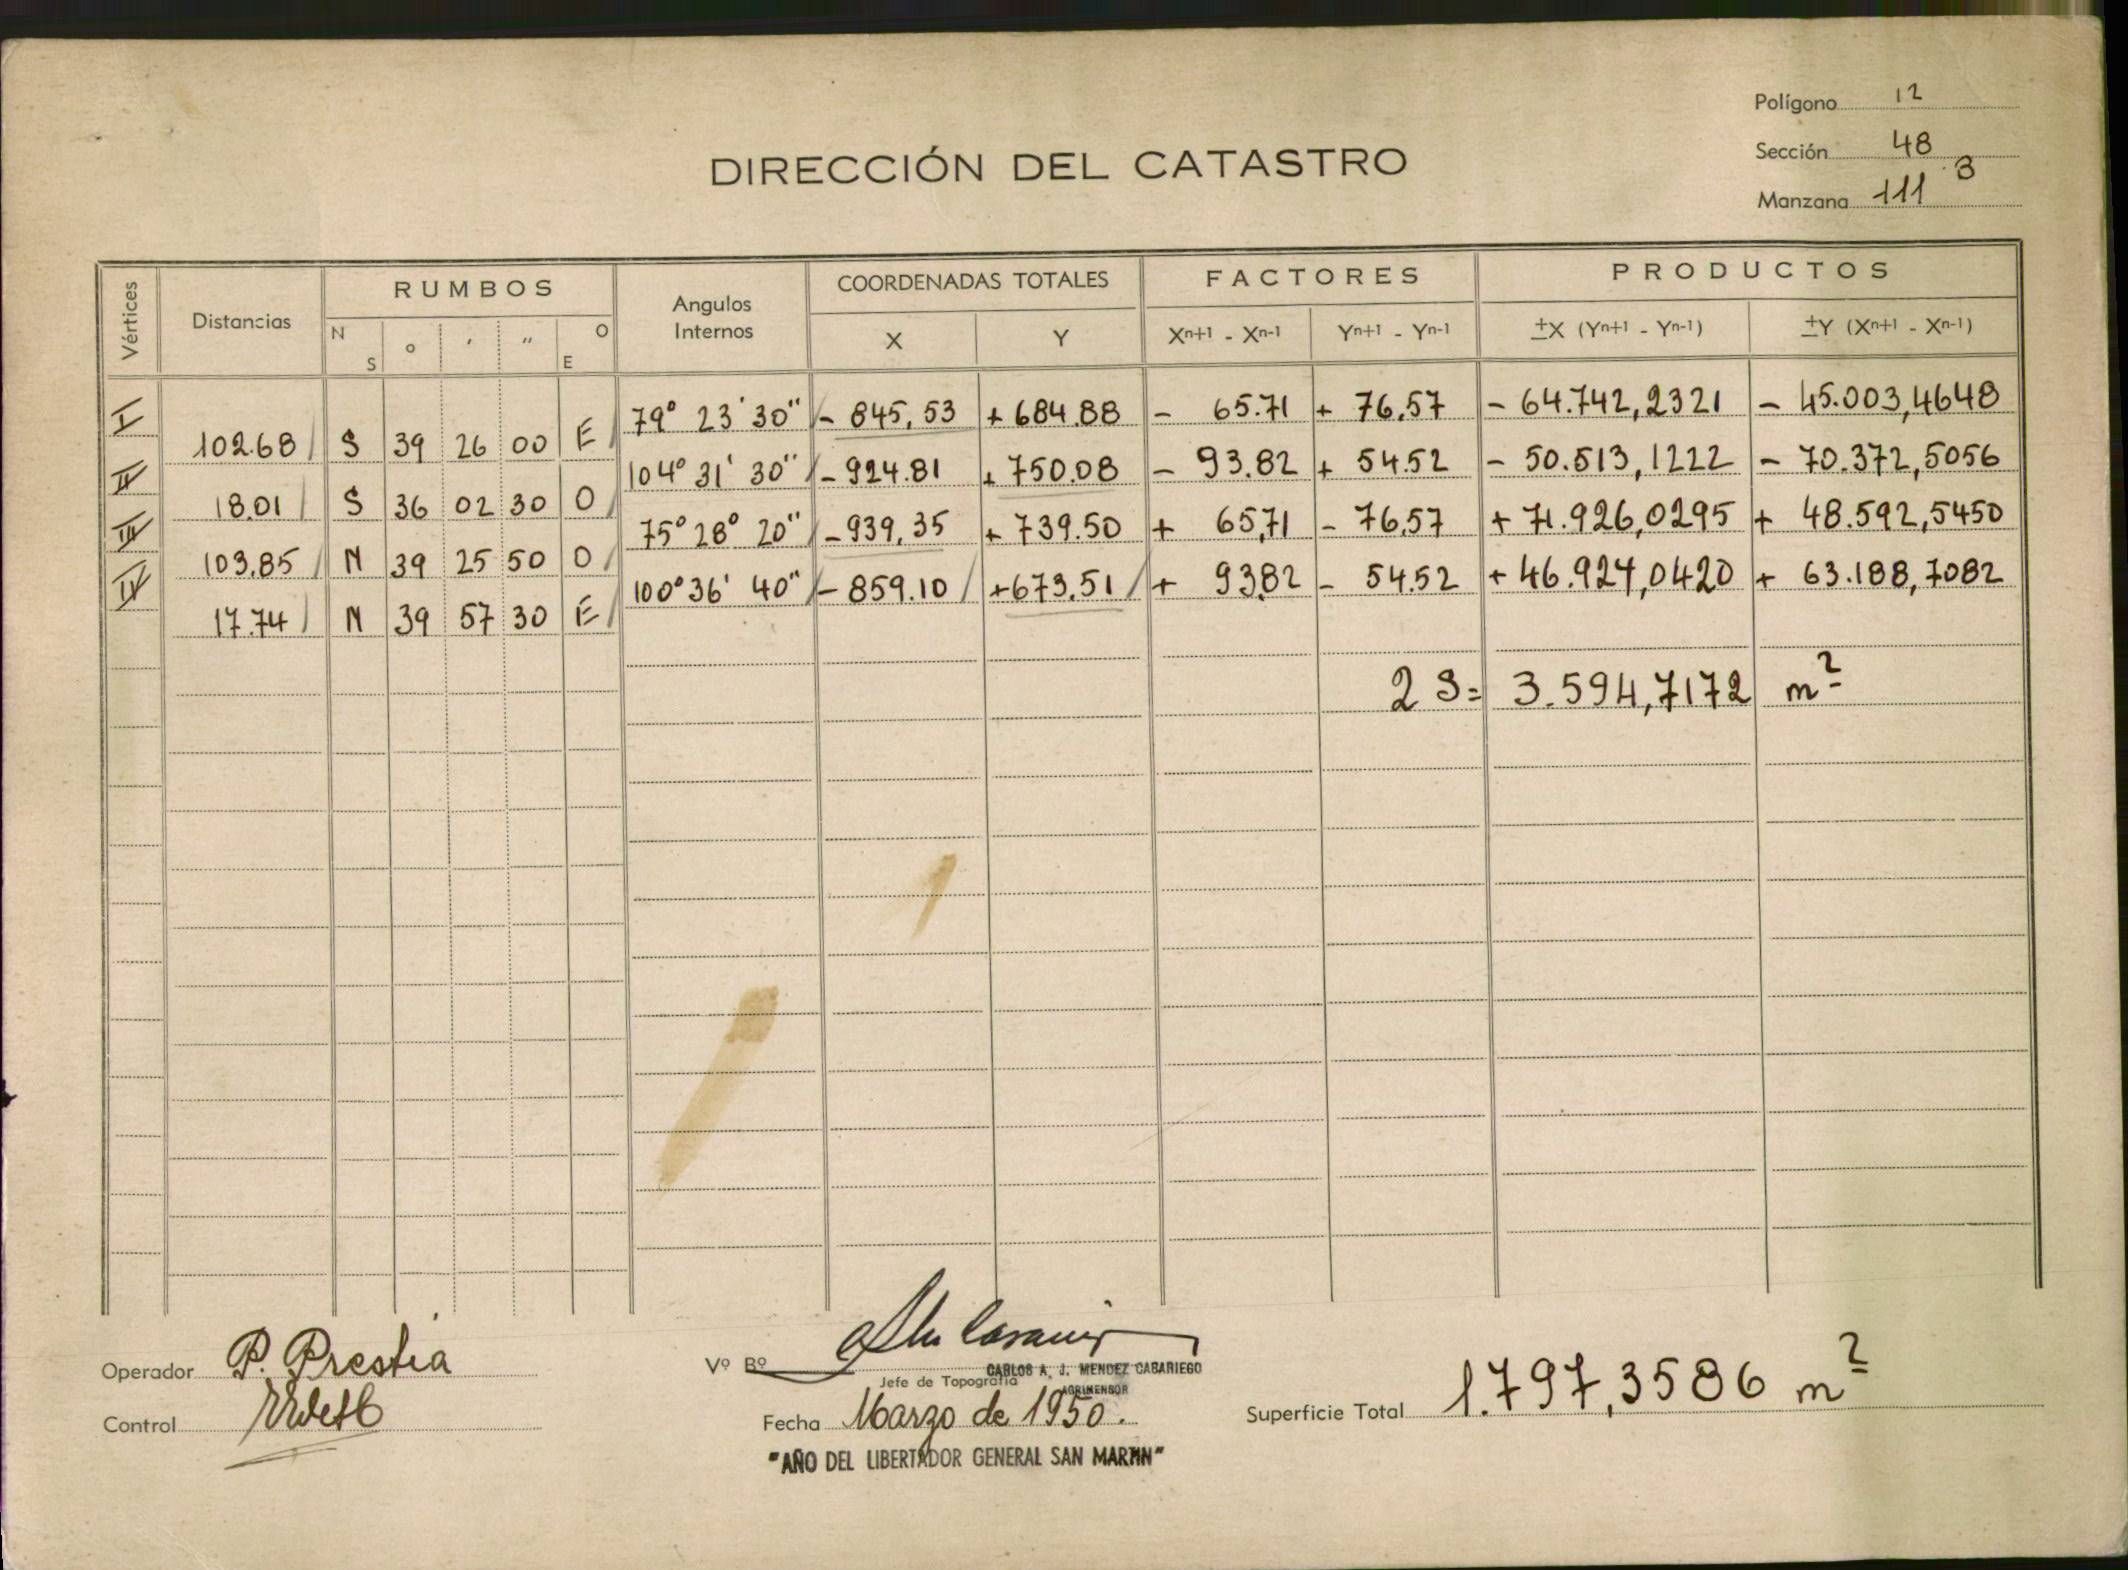 Polígono 12
Sección 48
Manzana 111 B
DIRECCIÓN DEL CATASTRO
Vértices Distancias RUMBOS Angulos Internos COORDENADAS TOTALES FACTORES PRODUCTOS
N S ° ′ ″ O E X Y Xn+1 - Xn-1 Yn+1 - Yn-1 ±X (Yn+1 - Yn-1) ±Y (Xn+1 - Xn-1)
I 79° 23' 30" - 845,53 + 684.88 - 65.71 + 76,57 - 64.742,2321 - 45.003,4648
102.68 S 39 26 00 E
II 104° 31' 30" - 924.81 + 750.08 - 93.82 + 54.52 - 50.513,1222 - 70.372,5056
18.01 S 36 02 30 O
III 75° 28° 20" - 939,35 + 739.50 + 65,71 - 76,57 + 71.926,0295 + 48.592,5450
103.85 N 39 25 50 O
IV 100° 36' 40" - 859.10 + 673.51 + 93,82 - 54.52 + 46.924,0420 + 63.188,7082
17.74 N 39 57 30 E
2 S = 3.594,7172 m2
Operador P. Prestia
Control
Vº Bº
CARLOS A. J. MENDEZ CASARIEGO
Jefe de Topografía
AGRIMENSOR
Fecha Marzo de 1950.
"AÑO DEL LIBERTADOR GENERAL SAN MARTIN"
Superficie Total 1.797,3586 m2